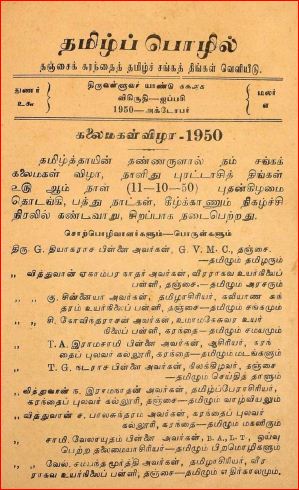 தமிழ்ப் பொழில்
தஞ்சைக் கரந்தைத் தமிழ்ச் சங்கத் திங்கள் வெளியீடு.
துணர்
உசு
திருவள்ளுவர் யாண்டு
விகிருதி—ஐப்பசி
1950—அக்டோபர்
மலர்
எ
கலைமகள்விழா - 1950
தமிழ்த்தாயின் தண்ணருளால் நம் சங்கக்
கலைமகள் விழா, நாளிது புரட்டாசித் திங்கள்
உடு ஆம் நாள் (11-10-50) புதன்கிழமை
தொடங்கி, பத்து நாட்கள், கீழ்க்காணும் நிகழ்ச்சி
நிரலில் கண்டவாறு, சிறப்பாக நடைபெற்றது.
சொற்பொழிவாளர்களும்—பொருள்களும்
திரு. G. தியாகராச பிள்ளை அவர்கள், G. V. M. C., தஞ்சை.
—தமிழும் தமிழரும்
,, வித்துவான் ஏகாம்பர காதர் அவர்கள், வீரராகவ உயர்நிலைப்
பள்ளி, தஞ்சை.—தமிழும் அரசரும்
,, ,, கு. சின்னையா அவர்கள், தமிழாசிரியர், கலியாண சுந்
தரம் உயர்நிலைப் பள்ளி, தஞ்சை—தமிழும் சங்கமும்
,, ,, சி. கோவிந்தராசன் அவர்கள், உமாமகேசுவர உயர்
நிலைப் பள்ளி, கரந்தை—தமிழும் சமயமும்
,, T. A. இராமசாமி பிள்ளை அவர்கள், ஆசிரியர், கரந்
தைப் புலவர் கல்லூரி, கரந்தை—தமிழும் மடங்களும்
,, T. G. நடராச பிள்ளை அவர்கள், நிலக்கிழவர், தஞ்சை
—தமிழும் செய்தித் தாளும்
,, வித்துவான் ந. இராமநாதன் அவர்கள், தமிழ்ப்பேராசிரியர்,
கரந்தைப் புலவர் கல்லூரி, தஞ்சை—தமிழும் வாழ்வியலும்
,, வித்துவான் ச. பாலசுந்தரம் அவர்கள், கரந்தைப் புலவர்
கல்லூரி, தஞ்சை—தமிழும் மகளிரும்
,, சாமி. வேலாயுதம் பிள்ளை அவர்கள், B.A., L.T., ஓய்வு
பெற்ற தலைமையாசிரியர்—தமிழும் பிறமொழிகளும்
,, ,, வேல. சம்பந்த மூர்த்தி அவர்கள், தமிழாசிரியர், வீர
ராகவ உயர்நிலைப் பள்ளி, தஞ்சை—தமிழும் எதிர்காலமும்.